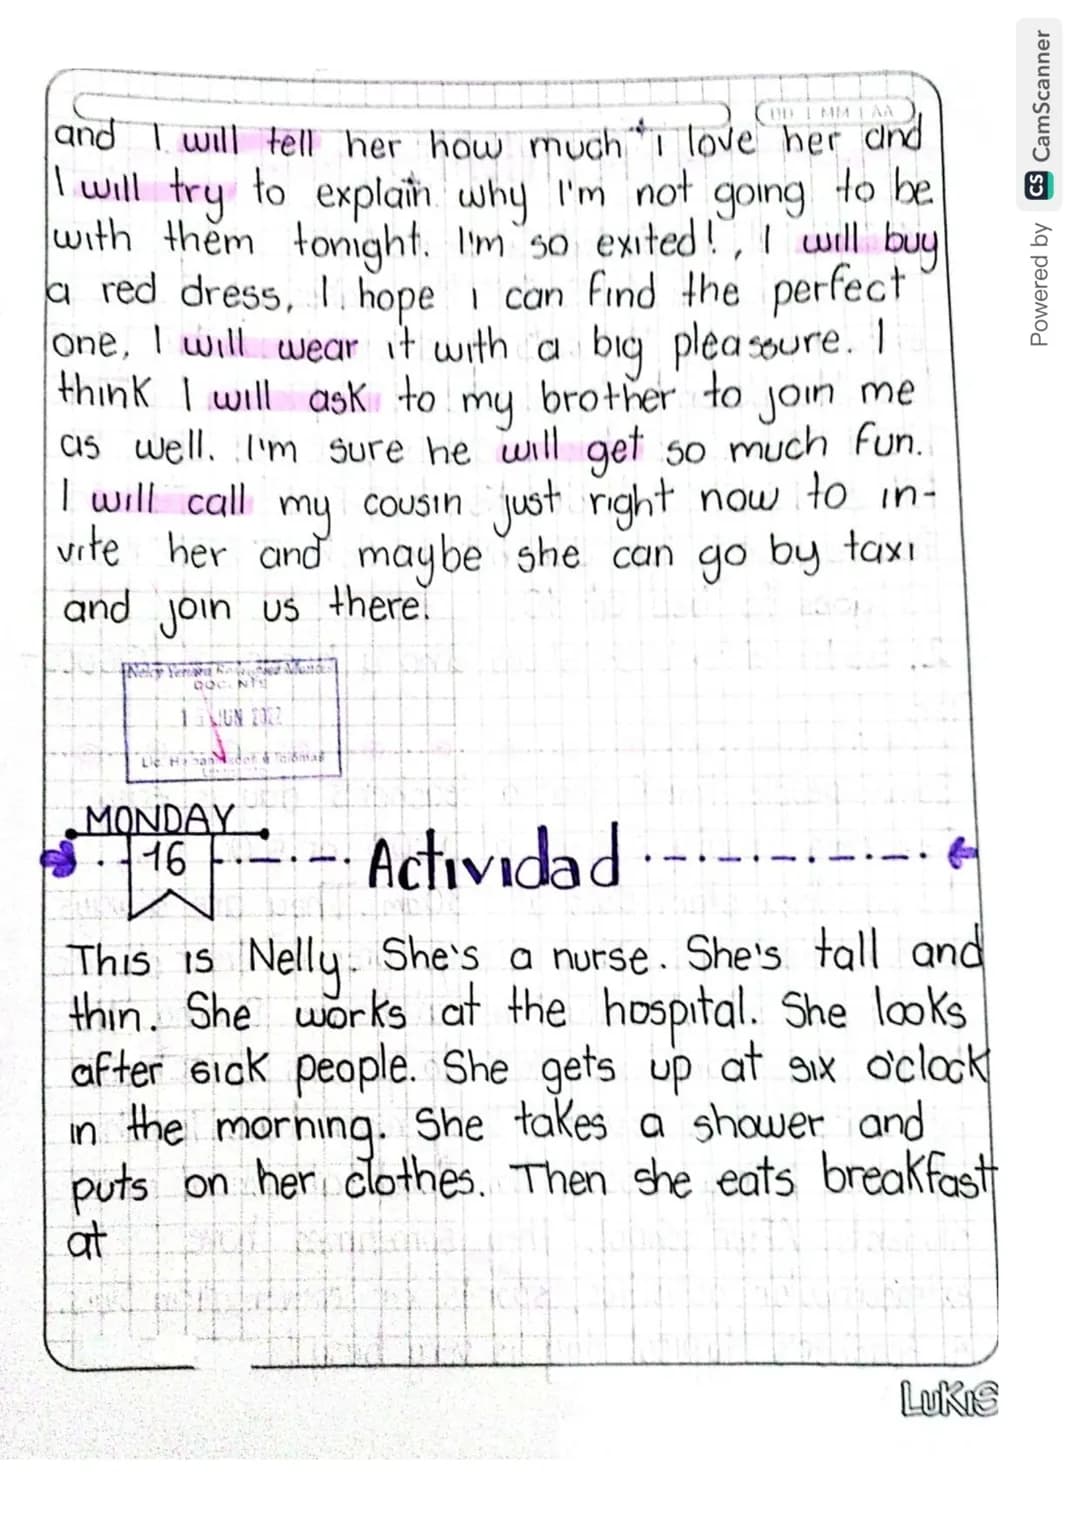 DD | MM | AA
and I will tell her how much i love her and
I will try to explain why I'm not going to be
with them tonight. I'm so exited!, I will buy
a red dress, I hope i can find the perfect
one, I will wear it with a big pleasoure. I
think I will ask to my brother to join me
as well. I'm sure he will get so much fun.
I will call my cousin just right now to in-
vite her and maybe she can go by taxi
and join us there.
JUN
MONDAY
16 Actividad
This is Nelly. She's a nurse. She's tall and
thin. She works at the hospital. She looks
after sick people. She gets up at six o'clock
in the morning. She takes a shower and
puts on her clothes. Then she eats breakfast
at
LUKIS
Powered by CS CamScanner